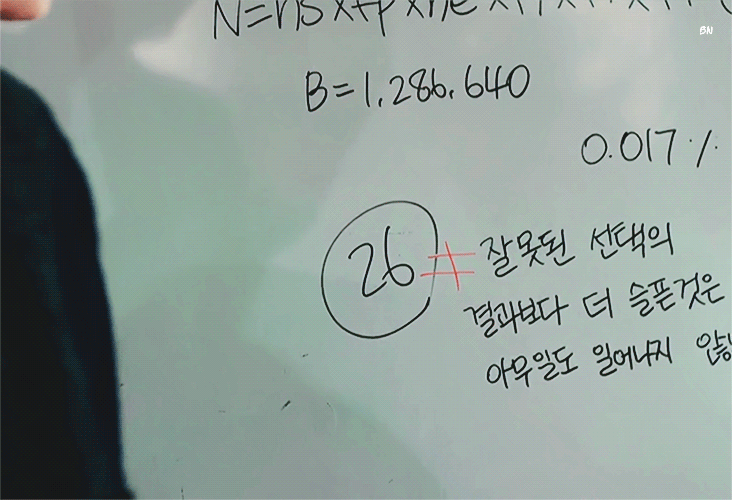 BN
N=ns×fp×ne×
B=1.286.640
0.017%
26 잘못된 선택의
결과보다 더 슬픈것은
아무일도 일어나지